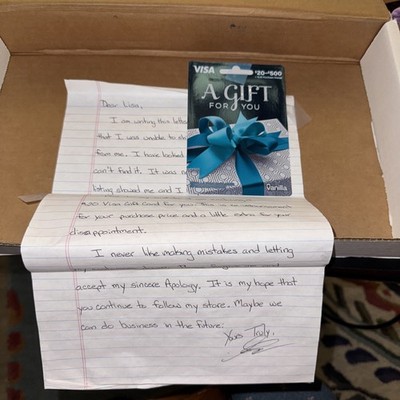 Dear Lisa,
I am writing this lette
that I was unable to sh
from me. I have looked
can't find it. It was n
listing showed me and I
Visa Gift Card for you. This is
for your purchase price and a little extra for your
disappointment.
I never like making mistakes and letting
accept my sincere Apology. It is my hope that
you continue to follow my store. Maybe we
can do business in the future.
Yours Truly,
VISA
$20-$500
A GIFT
FOR YOU
Vanilla